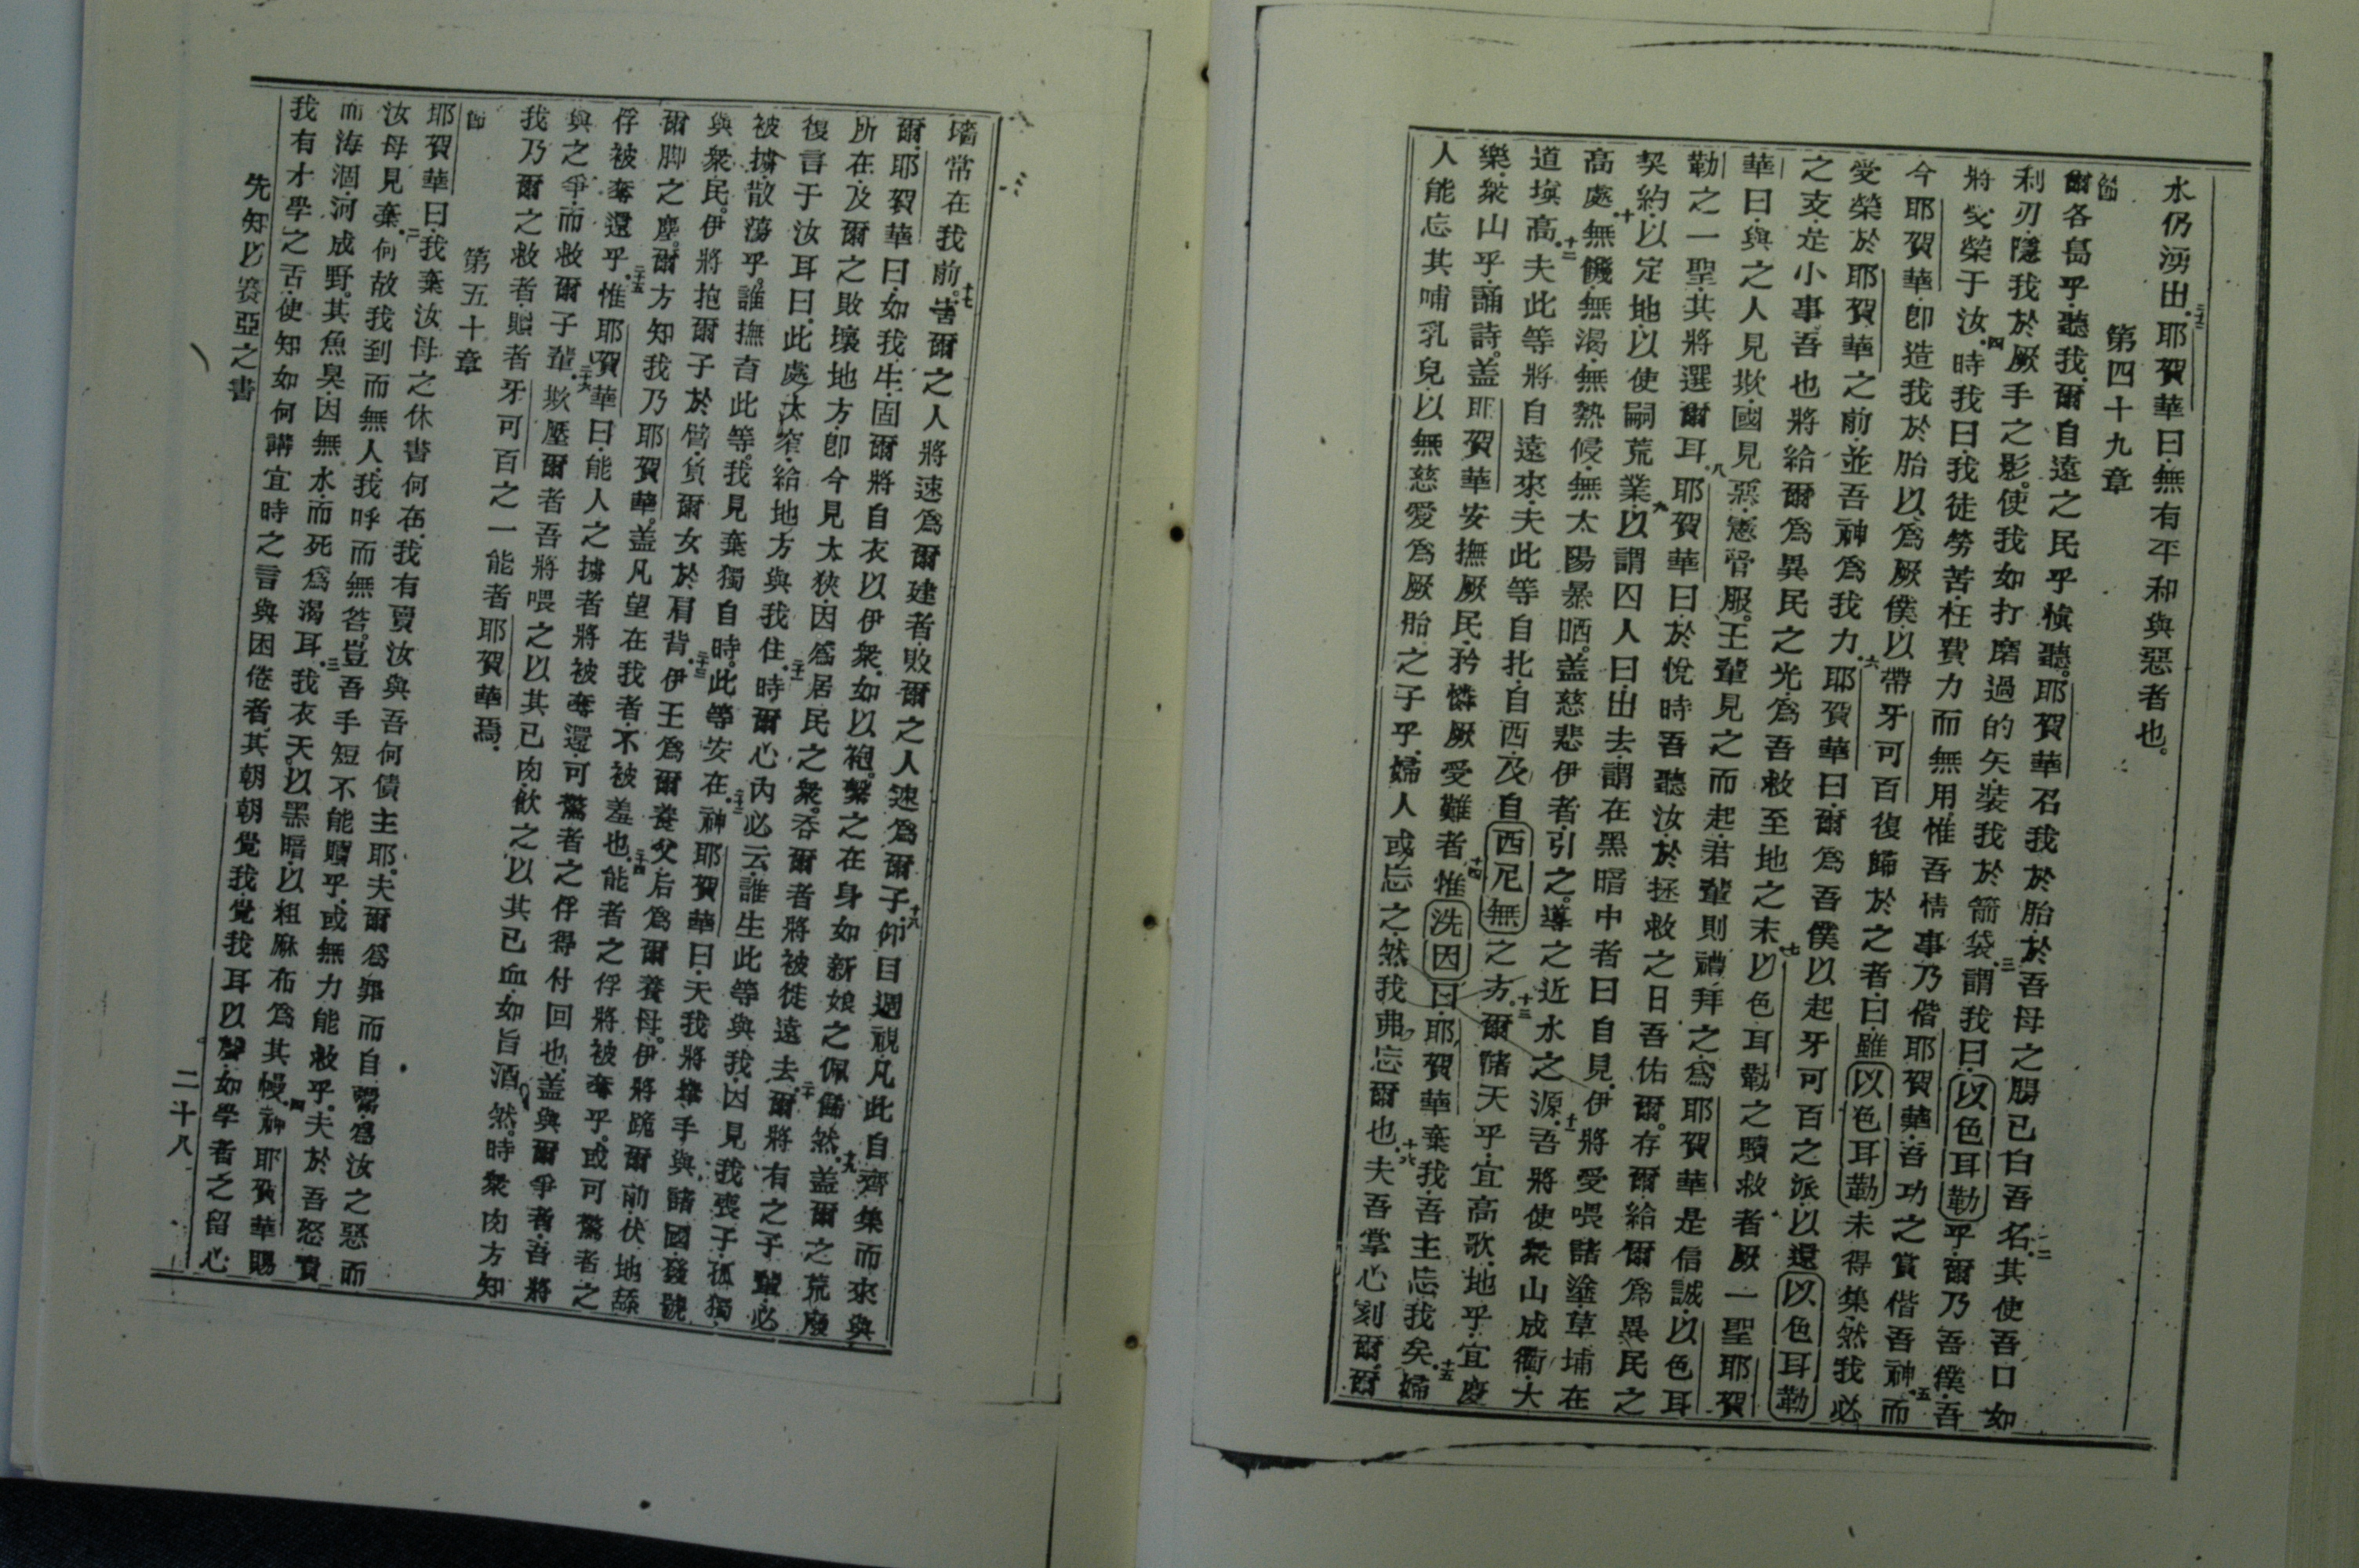 水仍湧出二十二耶賀華曰無有平和與惡者也。
第四十九章
節
爾各島乎聽我爾自遠之民乎慎聽。耶賀華召我於胎於吾母之腸已白吾名二其使吾口如
利刃隱我於厥手之影。使我如打磨過的矢裝我於箭袋三謂我曰以色耳勒乎爾乃吾僕吾
將受榮于汝四時我曰我徒勞苦枉費力而無用惟吾情事乃偕耶賀華吾功之賞偕吾神五而
今耶賀華即造我於胎以為厥僕以帶牙可百復歸於之者曰雖以色耳勒未得集然我必
愛榮於耶賀華之前並吾神為我力六耶賀華曰爾為吾僕以起牙可百之派以還以色耳勒
之支是小事吾也將給爾為異民之光為吾救至地之末七以色耳勒之贖救者厥一聖耶賀
華曰與之人見欺國見惡憲督服。王輩見之而起君輩則禮拜之為耶賀華是信誠以色耳
勒之一聖其將選爾耳八耶賀華曰於悅時吾聽汝於拯救之日吾佑爾。存爾給爾為異民之
契約以定地以使嗣荒業九以謂囚人曰出去謂在黑暗中者曰自見伊將受喂諸塗草埔在
高處十無饑無渴無熱侵無太陽暴晒。蓋慈悲伊者引之。導之近水之源十一吾將使衆山成衢大
道塡高十二夫此等將自遠來夫此等自北自西及自西尼無之方十三爾諸天乎宜高歌地乎宜慶
樂衆山乎誦詩。蓋耶賀華安撫厥民矜憐厥受難者十四惟洗因曰耶賀華棄我吾主忘我矣十五婦
人能忘其哺乳兒以無慈愛為厥胎之子乎婦人或忘之然我弗忘爾也十六夫吾掌心刻爾爾
墻常在我前十七害爾之人將速為爾建者敗爾之人速為爾子十八仰目週視凡此自齊集而來與
爾耶賀華曰如我生固爾將自衣以伊衆如以袍繫之在身如新娘之佩飾然十九蓋爾之荒廢
所在及爾之敗壞地方即今見太狹因為居民之衆。吞爾者將被徙遠去二十爾將有之子輩必
復言于汝耳曰此處太窄給地方與我住二十一時爾心內必云誰生此等與我因見我喪子孤獨
被擄散蕩乎。誰撫育此等。我見棄獨自時此等安在二十二神耶賀華曰夫我將舉手與諸國發號
與衆民。伊將抱爾子於臂負爾女於肩背二十三伊王為爾養父后為爾養母。伊將跪爾前伏地舔
爾脚之塵。爾方知我乃耶賀華。蓋凡望在我者不被羞也二十四能者之俘將被奪乎。或可驚者之
俘被奪還乎二十五惟耶賀華曰能人之擄者將被奪還可驚者之俘得付回也蓋與爾爭者吾將
與之爭而救爾子輩二十六欺壓爾者吾將喂之以其已肉飲之以其已血如旨酒然。時衆肉方知
我乃爾之救者贖者牙可百之一能者耶賀華焉
第五十章
節
耶賀華曰我棄汝母之休書何在我有賣汝與吾何債主耶。夫爾為罪而自鬻為汝之惡而
汝母見棄二何故我到而無人我呼而無答。豈吾手短不能贖乎或無力能救乎。夫於吾怒責
而海涸河成野。其魚臭因無水而死為渴耳三我衣天以黑暗以粗麻布為其幔四神耶賀華賜
我有才學之舌使知如何講宜時之言與困倦者其朝朝覺我覺我耳以聽如學者之留心
先知以賽亞之書
二十八